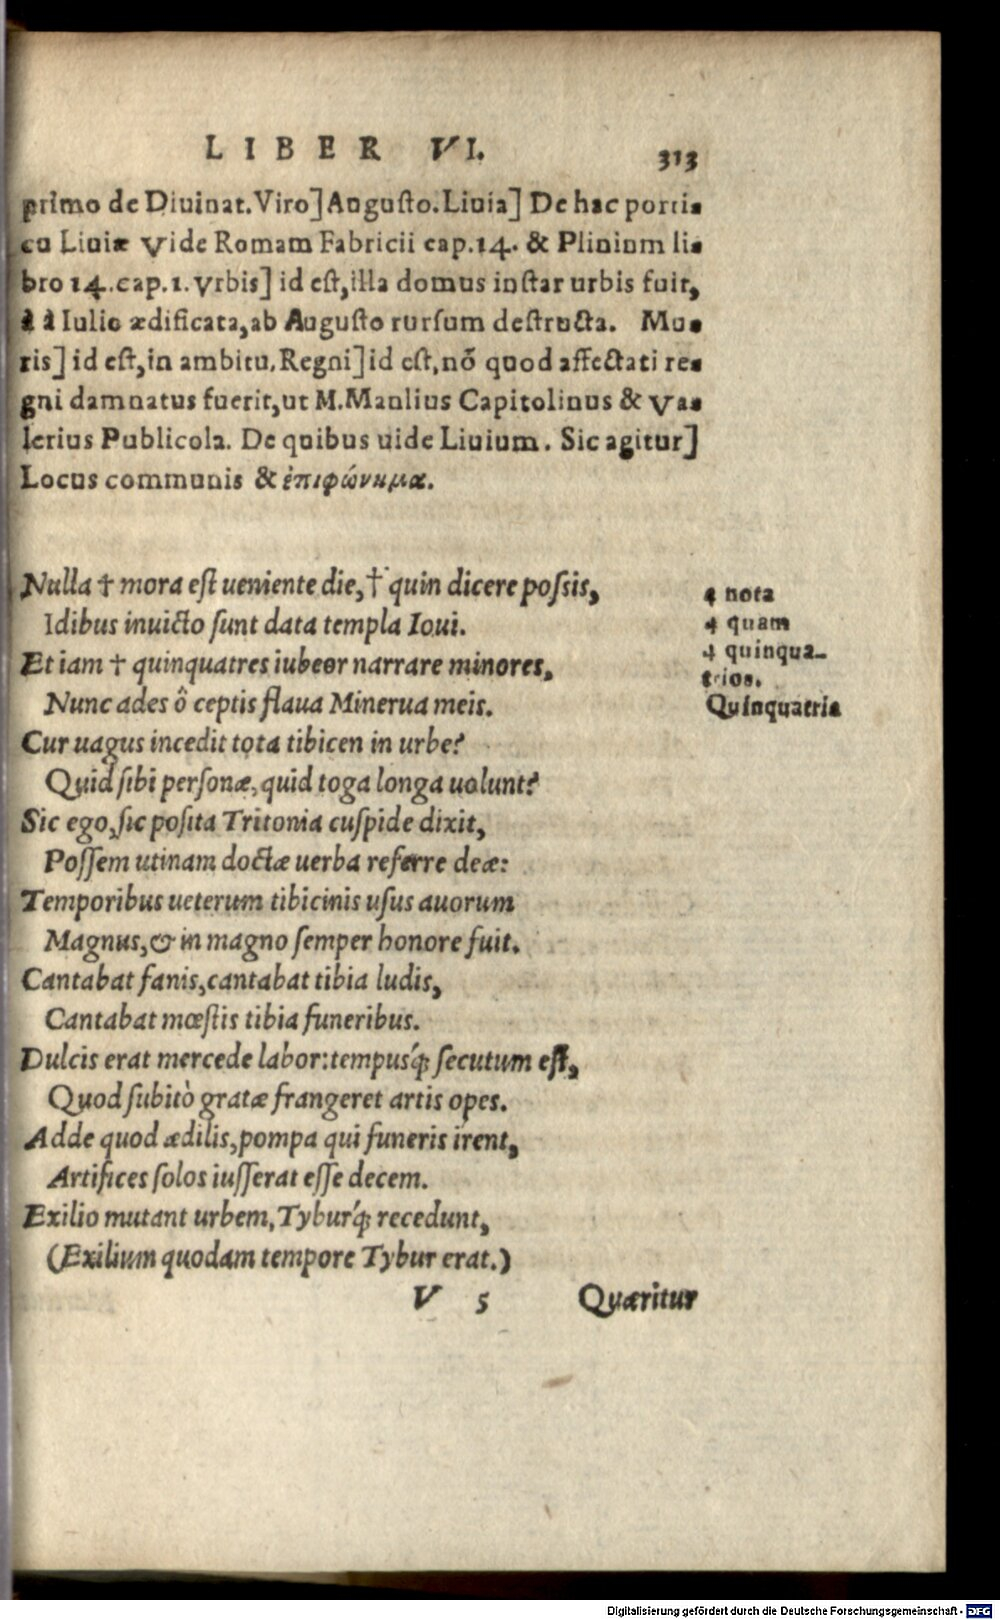 LIBER VI. 313
primo de Diuinat. Viro] Augusto. Liuia] De hac porti-
cu Liuiæ Vide Romam Fabricii cap. 14. & Plinium li-
bro 14. cap. 1. Vrbis] id est, illa domus instar urbis fuit,
à à Iulio ædificata, ab Augusto rursum destructa. Mu-
ris] id est, in ambitu. Regni] id est, nõ quod affectati re-
gni damnatus fuerit, ut M. Manlius Capitolinus & Va-
lerius Publicola. De quibus uide Liuium. Sic agitur]
Locus communis & ἐπιφώνημα.
Nulla † mora est ueniente die, † quin dicere possis,
Idibus inuicto sunt data templa Ioui.
Et iam † quinquatres iubeor narrare minores,
Nunc ades ô ceptis flaua Minerua meis.
Cur uagus incedit tota tibicen in urbe?
Quid sibi personæ, quid toga longa uolunt?
Sic ego, sic posita Tritonia cuspide dixit,
Possem utinam doctæ uerba referre deæ:
Temporibus ueterum tibicinis usus auorum
Magnus, & in magno semper honore fuit.
Cantabat fanis, cantabat tibia ludis,
Cantabat mœstis tibia funeribus.
Dulcis erat mercede labor: tempusq́; secutum est,
Quod subitò gratæ frangeret artis opes.
Adde quod ædilis, pompa qui funeris irent,
Artifices solos iusserat esse decem.
Exilio mutant urbem, Tyburq́; recedunt,
(Exilium quodam tempore Tybur erat.)
V 5 Quæritur
4 nota
4 quam
4 quinqua-
trios.
Quinquatria
Digitalisierung gefördert durch die Deutsche Forschungsgemeinschaft - DFG